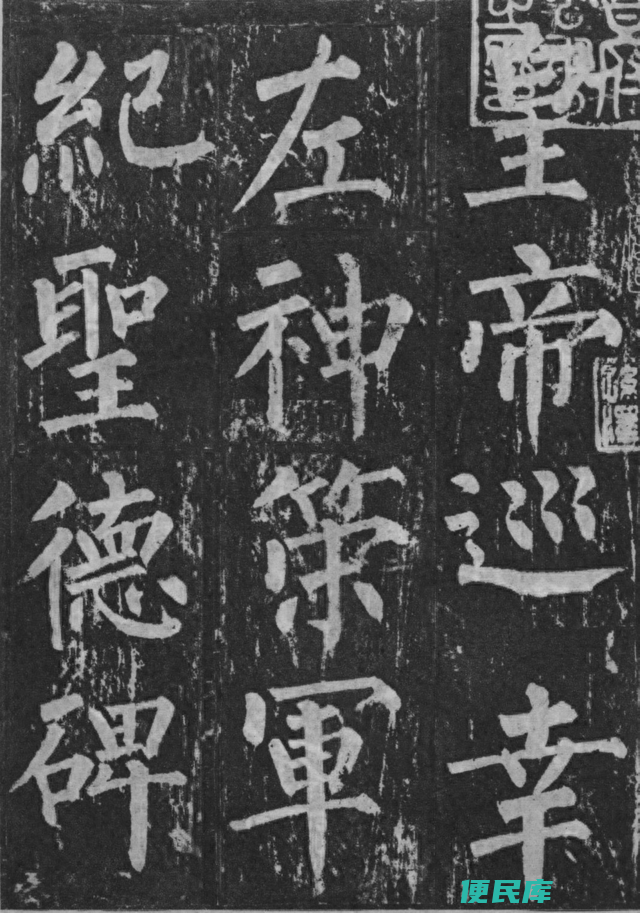 皇帝巡幸
左神策軍
紀聖德碑
便民库